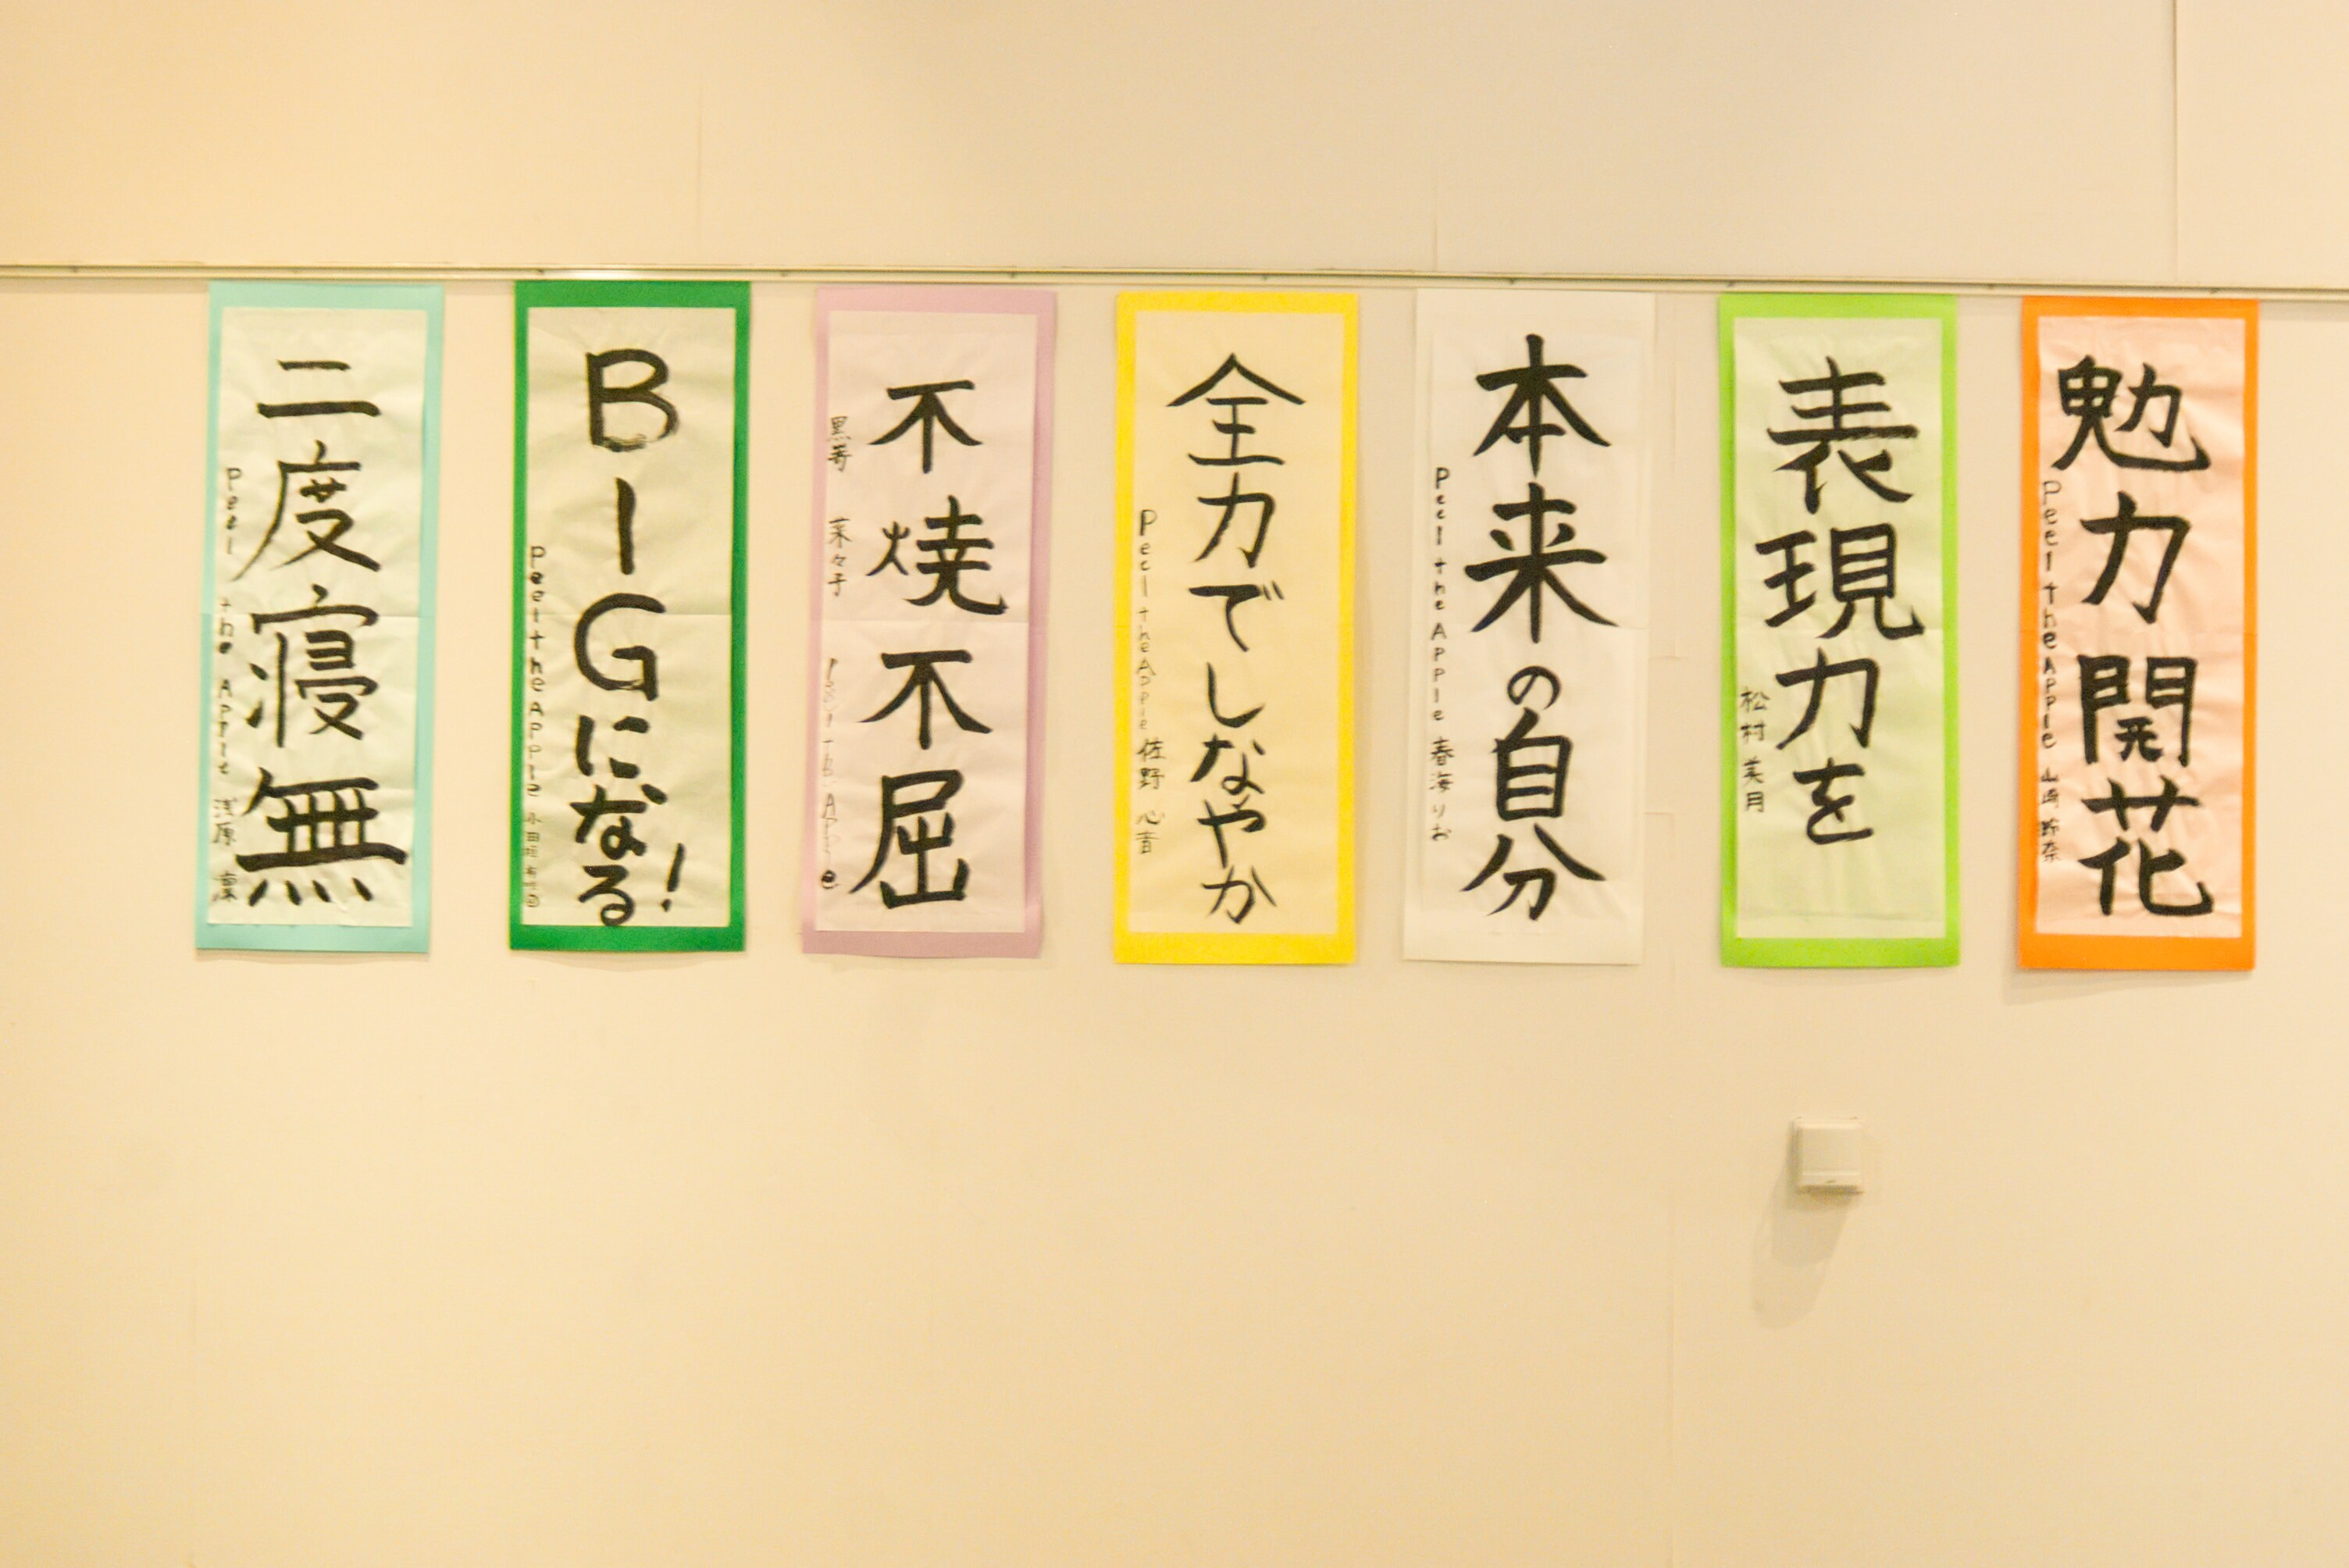 勉力開花
Peel the Apple 山崎 玲奈
表現力を
松村 美月
本来の自分
Peel the Apple 春海りお
全力でしなやか
Peel the Apple 佐野 心音
不焼不屈
黒嵜 菜々子
BIGになる!
Peel the Apple
二度寝無
Peel the Apple 浅原 凜